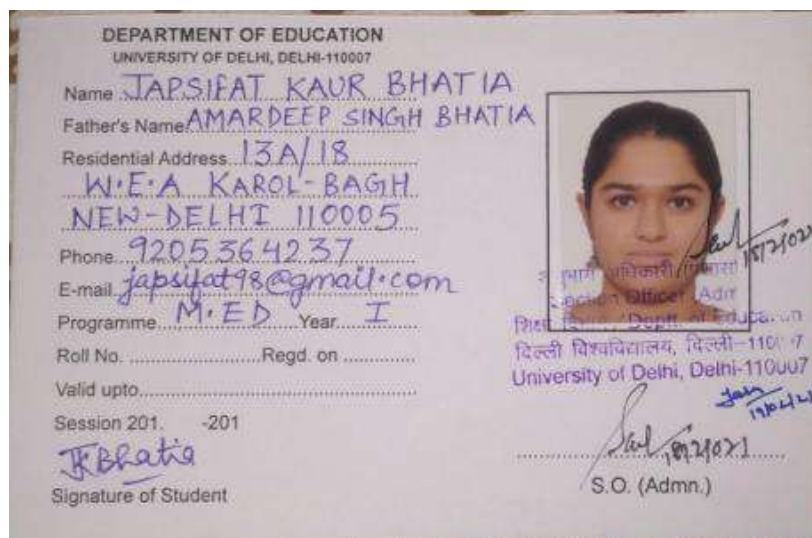 DEPARTMENT OF EDUCATION
UNIVERSITY OF DELHI, DELHI-110007
Name JAPSIFAT KAUR BHATIA
Father's Name AMARDEEP SINGH BHATIA
Residential Address 13A/18
W.E.A KAROL-BAGH
NEW-DELHI 110005
Phone 9205364237
E-mail japsifat98@gmail.com
Programme M.ED Year I
Roll No. Regd. on
Valid upto
Session 201. -201
JKBhatia
Signature of Student
अधिकारी
Section Officer Adm
Deptt. of Education
दिल्ली विश्वविद्यालय, दिल्ली-110007
University of Delhi, Delhi-110007
S.O. (Admn.)